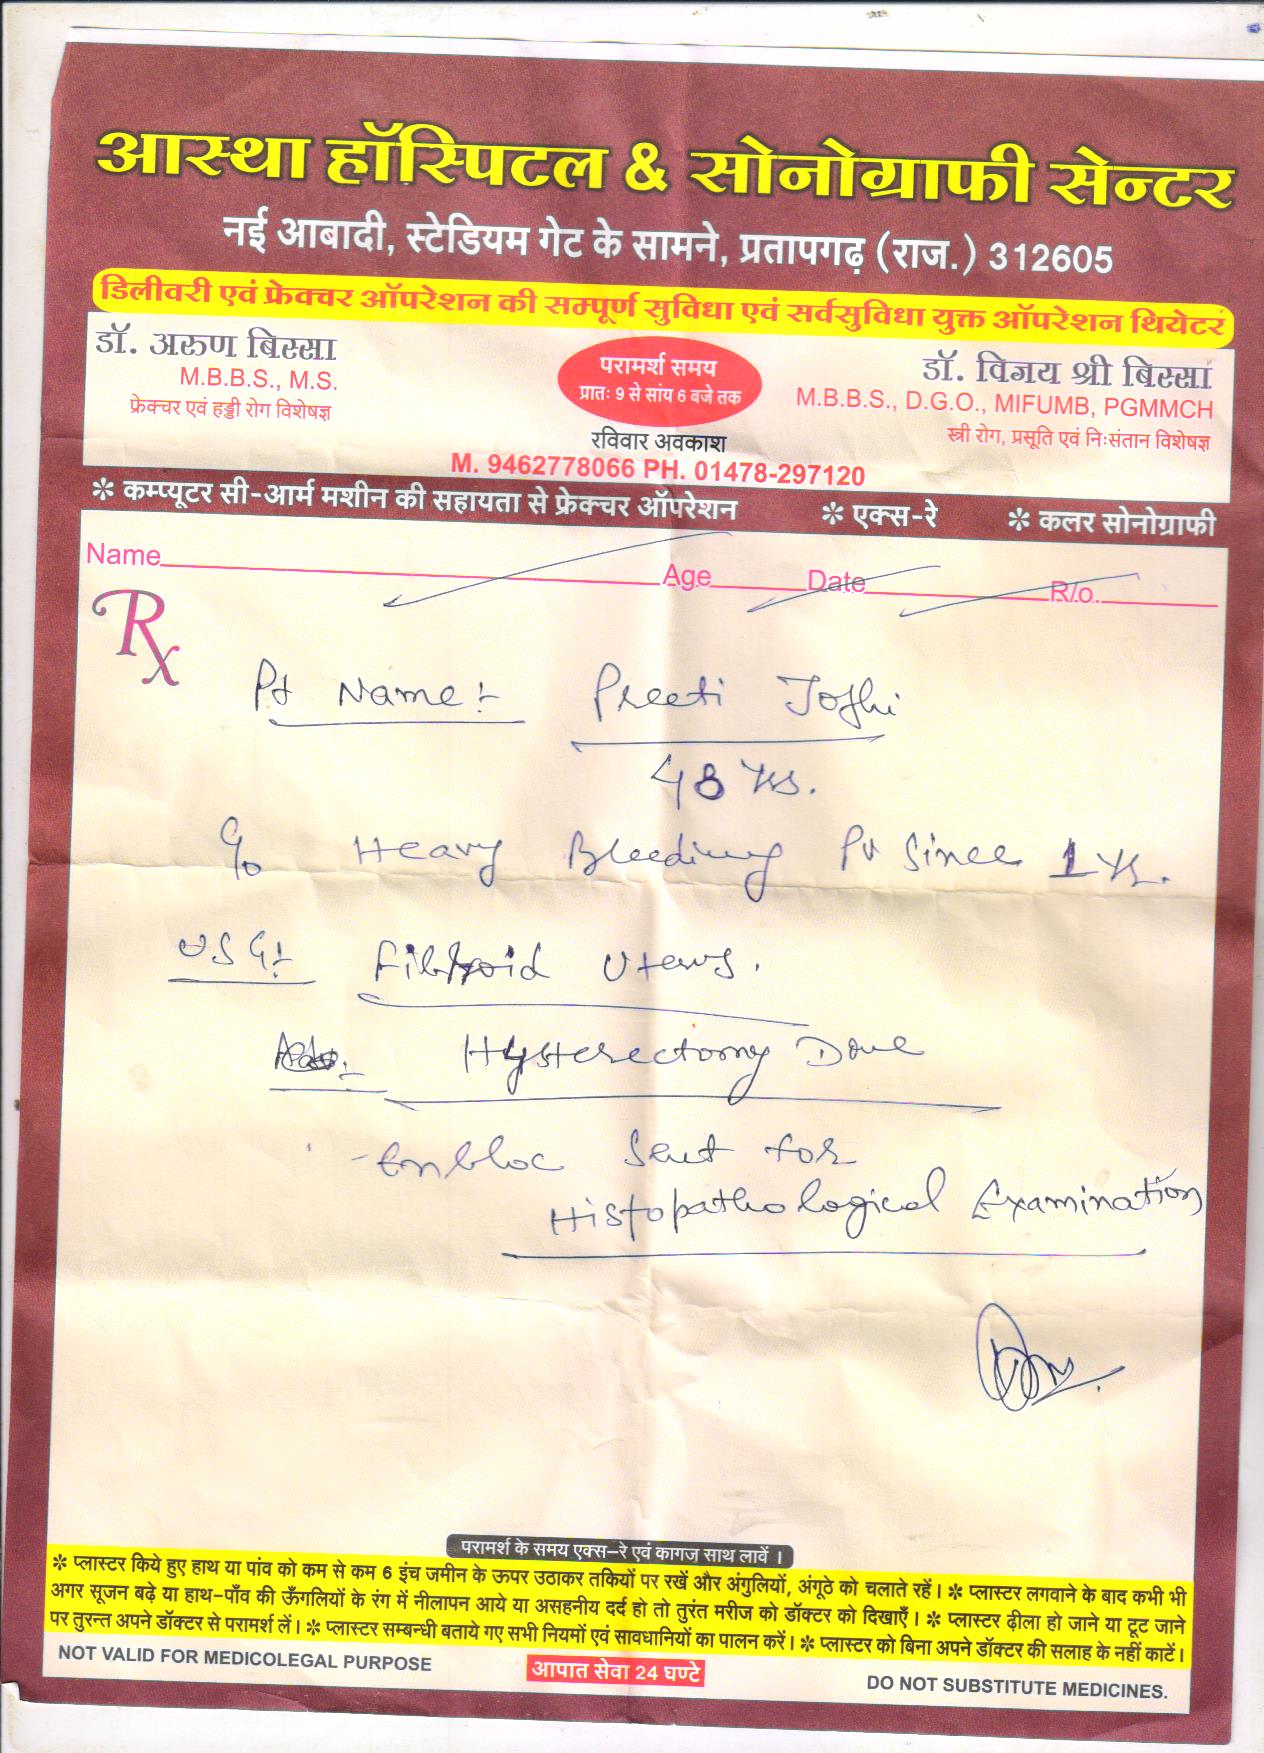 आस्था हॉस्पिटल & सोनोग्राफी सेन्टर
नई आबादी, स्टेडियम गेट के सामने, प्रतापगढ़ (राज.) 312605
डिलीवरी एवं फ्रेक्चर ऑपरेशन की सम्पूर्ण सुविधा एवं सर्वसुविधा युक्त ऑपरेशन थियेटर
डॉ. अरुण बिस्सा
M.B.B.S., M.S.
फ्रेक्चर एवं हड्डी रोग विशेषज्ञ
परामर्श समय
प्रातः 9 से सांय 6 बजे तक
रविवार अवकाश
M. 9462778066 PH. 01478-297120
डॉ. विजय श्री बिस्सा
M.B.B.S., D.G.O., MIFUMB, PGMMCH
स्त्री रोग, प्रसूति एवं निःसंतान विशेषज्ञ
✻ कम्प्यूटर सी-आर्म मशीन की सहायता से फ्रेक्चर ऑपरेशन ✻ एक्स-रे ✻ कलर सोनोग्राफी
Name Age Date R/o.
Rx
Pt Name:- Preeti Joshi
48 Yrs.
C/o Heavy Bleeding PV Since 1 Yr.
USG:- Fibroid Uterus.
Hysterectomy Done
- Enbloc Sent for
Histopathological Examination
परामर्श के समय एक्स-रे एवं कागज साथ लावें ।
✻ प्लास्टर किये हुए हाथ या पांव को कम से कम 6 इंच जमीन के ऊपर उठाकर तकियों पर रखें और अंगुलियों, अंगूठे को चलाते रहें। ✻ प्लास्टर लगवाने के बाद कभी भी
अगर सूजन बढ़े या हाथ-पाँव की ऊँगलियों के रंग में नीलापन आये या असहनीय दर्द हो तो तुरंत मरीज को डॉक्टर को दिखाएँ। ✻ प्लास्टर ढ़ीला हो जाने या टूट जाने
पर तुरन्त अपने डॉक्टर से परामर्श लें। ✻ प्लास्टर सम्बन्धी बताये गए सभी नियमों एवं सावधानियों का पालन करें। ✻ प्लास्टर को बिना अपने डॉक्टर की सलाह के नहीं काटें।
NOT VALID FOR MEDICOLEGAL PURPOSE
आपात सेवा 24 घण्टे
DO NOT SUBSTITUTE MEDICINES.